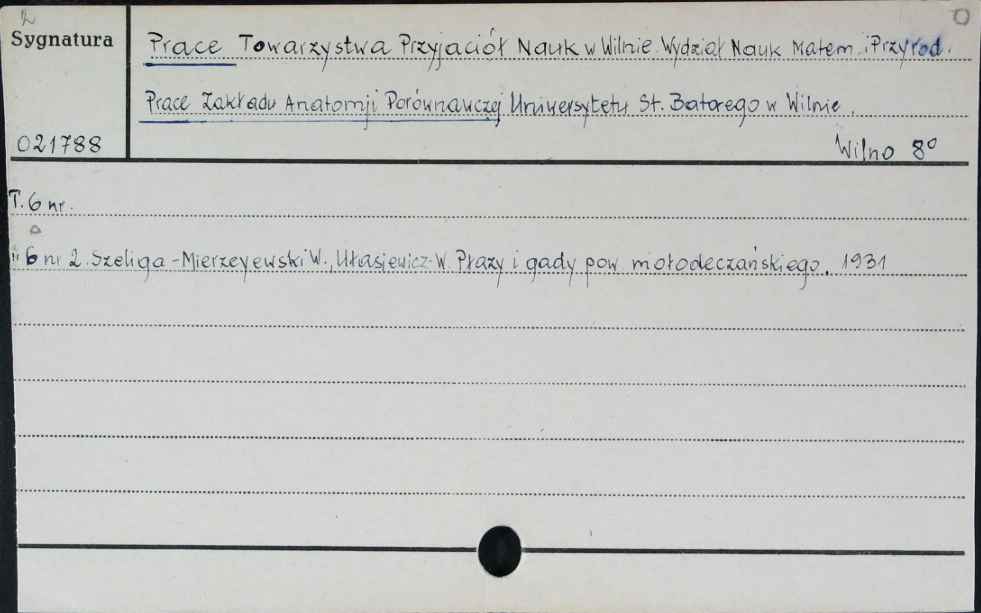 2
Sygnatura
Prace Towarzystwa Przyjaciół Nauk w Wilnie. Wydział Nauk Matem. i Przyrod.
Prace Zakładu Anatomji Porównawczej Uniwersytetu St. Batorego w Wilnie.
021788
Wilno 8°
T. 6 nr.
6 nr 2. Szeliga-Mierzeyewski W., Ułasiewicz W. Płazy i gady pow. mołodeczańskiego. 1931